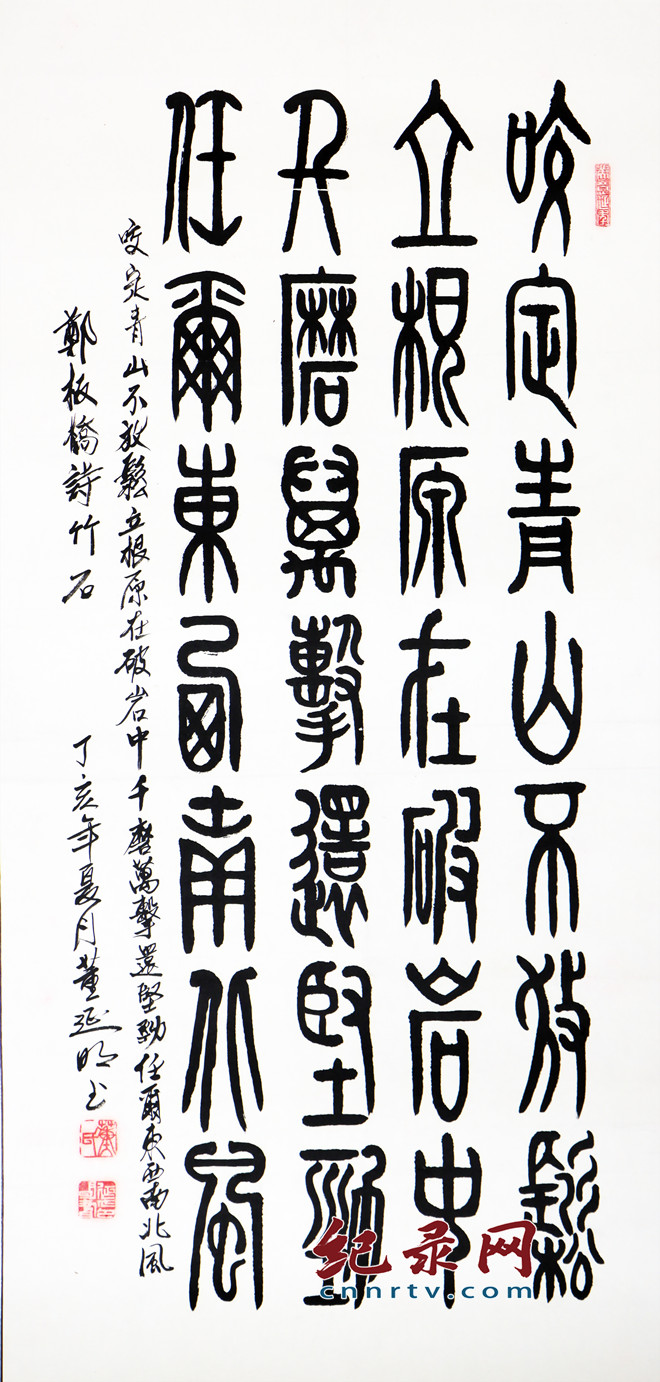 咬定青山不放鬆
立根原在破岩中
千磨萬擊還堅勁
任爾東西南北風
咬定青山不放鬆立根原在破岩中千磨萬擊還堅勁任爾東西南北風
鄭板橋詩竹石 丁亥年夏月董延明书
纪录网
cnnrtv.com